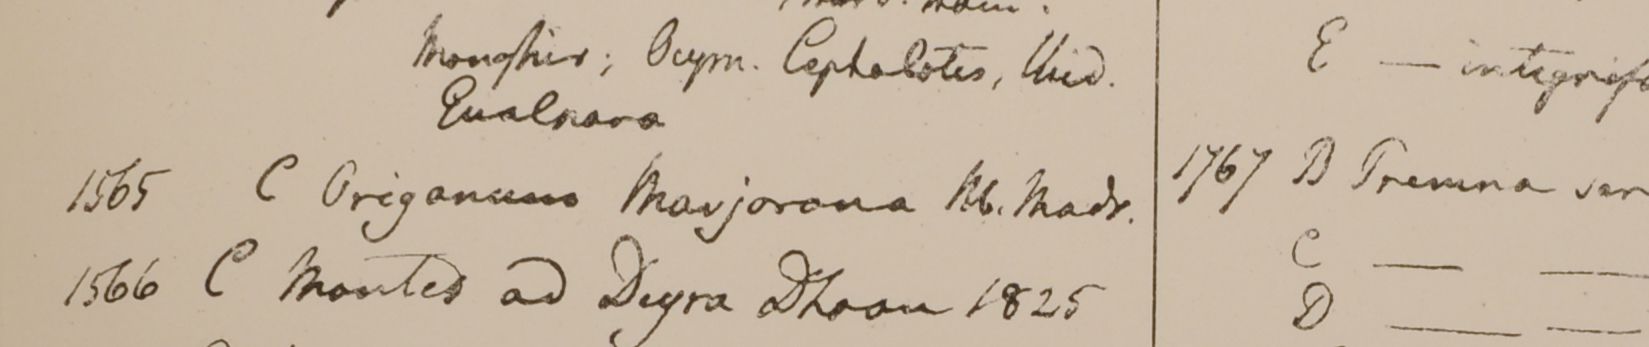 Monghir; Ocym. Cephalotes, Uid.
1565 C Origanum Marjorana Hb. Madr.
1566 C Montes ad Deyra Dhoon 1825
E — integrifo
1767 B Premna ser
C — —
D — —